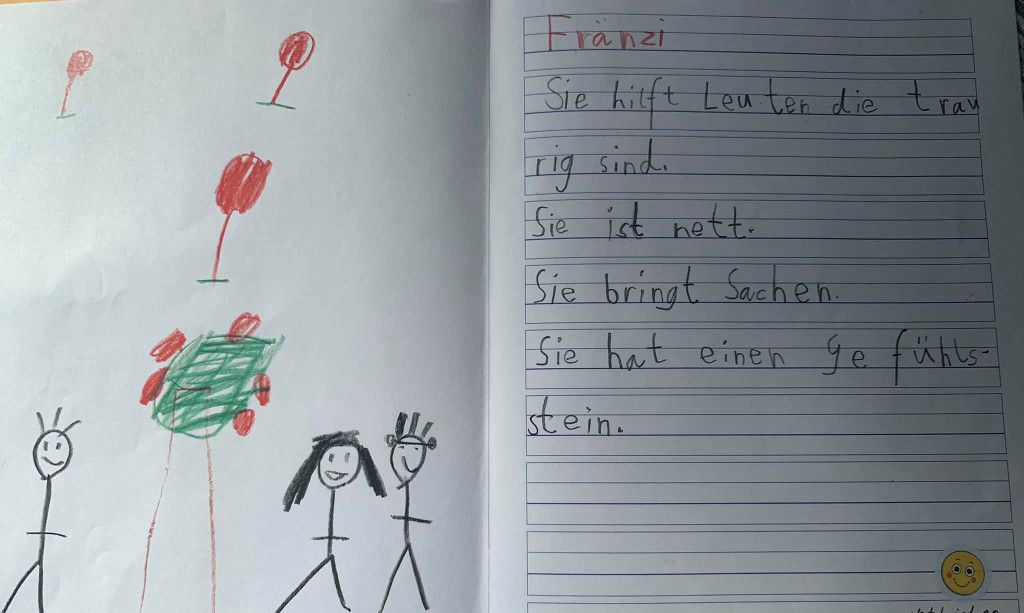 Fränzi
Sie hilft Leuten die trau
rig sind.
Sie ist nett.
Sie bringt Sachen.
Sie hat einen Gefühls-
stein.